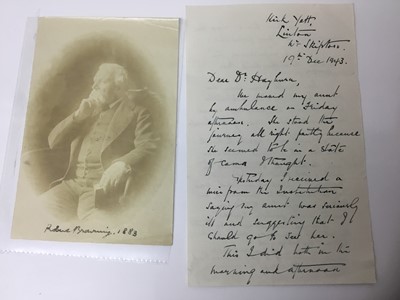 Robert Browning, 1883
Kirk Yett,
Linton
Nr Skipton.
19th Dec 1943.
Dear Dr Hayburn,
We moved my aunt
by ambulance on Friday
afternoon. She stood the
journey all right partly because
she seemed to be in a state
of coma I thought.
Yesterday I received a
wire from the Institution
saying my aunt was seriously
ill and suggesting that I
should go to see her.
This I did both in the
morning and afternoon